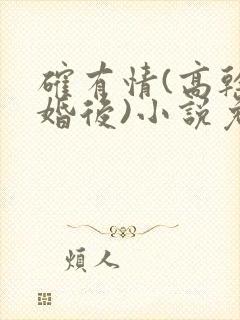 確有情(高幹
婚後)小說
煩人